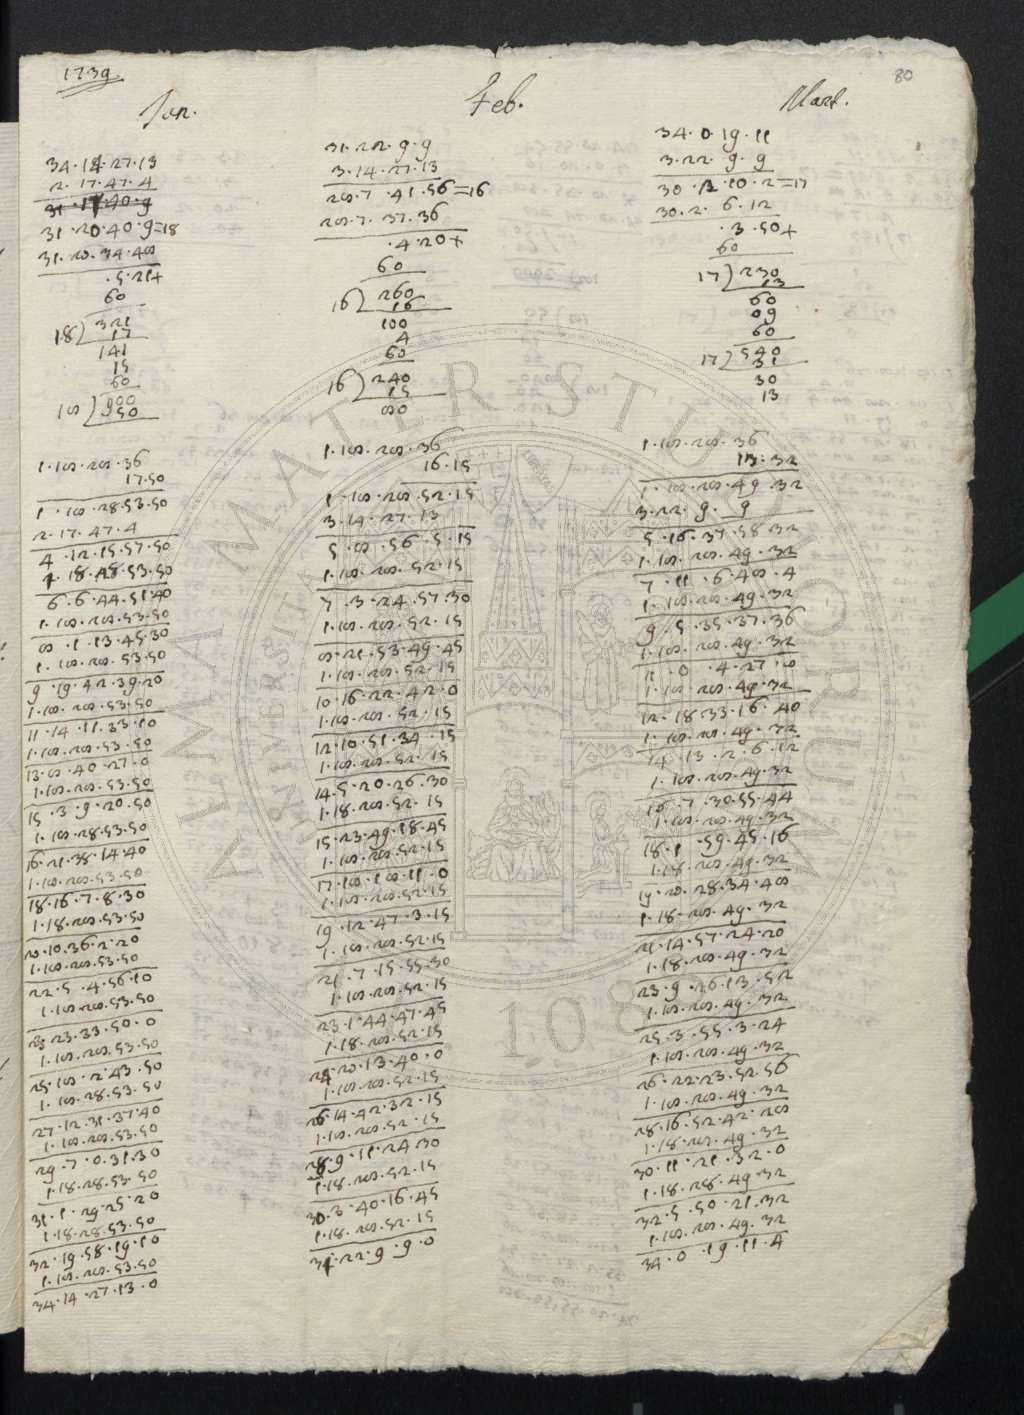 1739.
80
Jan.
34.14.27.13
2.17.47.4
31.17.40.9
31.20.40.9=18
31.20.34.48
.5.21+
60
18) 321
17
141
15
60
18) 900
50
1.18.28.36
17.50
1.18.28.53.50
2.17.47.4
4.12.15.57.50
1.18.28.53.50
6.6.44.51.40
1.18.28.53.50
8.1.13.45.30
1.18.28.53.50
9.19.42.39.20
1.18.28.53.50
11.14.11.33.10
1.18.28.53.50
13.8.40.27.0
1.18.28.53.50
15.3.9.20.50
1.18.28.53.50
16.21.38.14.40
1.18.28.53.50
18.16.7.8.30
1.18.28.53.50
20.10.36.2.20
1.18.28.53.50
22.5.4.56.10
1.18.28.53.50
23.23.33.50.0
1.18.28.53.50
25.18.2.43.50
1.18.28.53.50
27.12.31.37.40
1.18.28.53.50
29.7.0.31.30
1.18.28.53.50
31.1.29.25.20
1.18.28.53.50
32.19.58.19.10
1.18.28.53.50
34.14.27.13.0
Feb.
31.22.9.9
3.14.27.13
28.7.41.56=16
28.7.37.36
.4.20+
60
16) 260
16
100
4
60
16) 240
15
80
1.18.28.36
16.15
1.18.28.52.15
3.14.27.13
5.8.56.5.15
1.18.28.52.15
7.3.24.57.30
1.18.28.52.15
8.21.53.49.45
1.18.28.52.15
10.16.22.42.0
1.18.28.52.15
12.10.51.34.15
1.18.28.52.15
14.5.20.26.30
1.18.28.52.15
15.23.49.18.45
1.18.28.52.15
17.18.18.11.0
1.18.28.52.15
19.12.47.3.15
1.18.28.52.15
21.7.15.55.30
1.18.28.52.15
23.1.44.47.45
1.18.28.52.15
24.20.13.40.0
1.18.28.52.15
26.14.42.32.15
1.18.28.52.15
28.9.11.24.30
1.18.28.52.15
30.3.40.16.45
1.18.28.52.15
31.22.9.9.0
Mart.
34.0.19.11
3.22.9.9
30.2.10.2=17
30.2.6.12
.3.50+
60
17) 230
13
60
09
60
17) 540
31
30
13
1.18.28.36
13.32
1.18.28.49.32
3.22.9.9
5.16.37.58.32
1.18.28.49.32
7.11.6.48.4
1.18.28.49.32
9.5.35.37.36
1.18.28.49.32
11.0.4.27.8
1.18.28.49.32
12.18.33.16.40
1.18.28.49.32
14.13.2.6.12
1.18.28.49.32
16.7.30.55.44
1.18.28.49.32
18.1.59.45.16
1.18.28.49.32
19.20.28.34.48
1.18.28.49.32
21.14.57.24.20
1.18.28.49.32
23.9.26.13.52
1.18.28.49.32
25.3.55.3.24
1.18.28.49.32
26.22.23.52.56
1.18.28.49.32
28.16.52.42.28
1.18.28.49.32
30.11.21.32.0
1.18.28.49.32
32.5.50.21.32
1.18.28.49.32
34.0.19.11.4
ALMA MATER STUDIORUM
UNIVERSITA
A.D. 1088